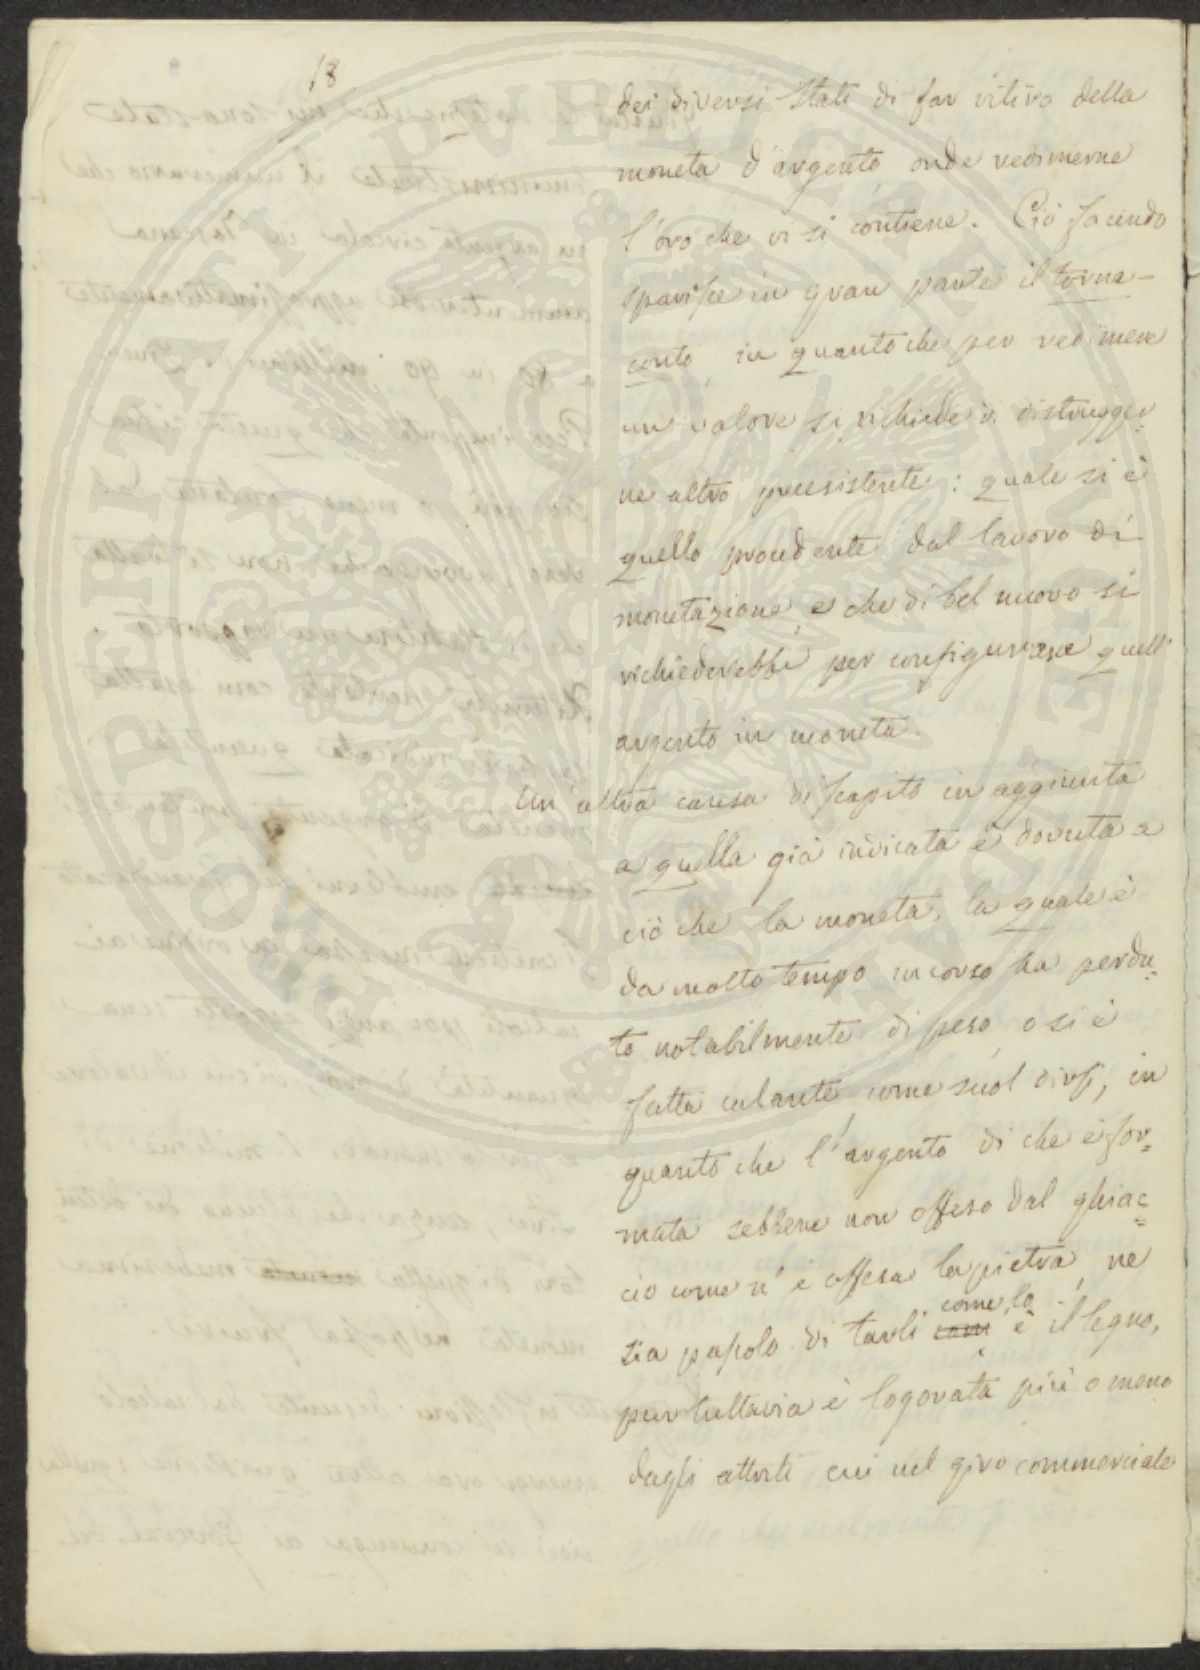 18
dei diversi Stati di far ritiro della
moneta d'argento onde redimerne
l'oro che vi si contiene. Ciò facendo
sparisce in gran parte il torna-
conto, in quanto che per redimere
un valore si richiede di distrugger-
ne altro preesistente: quale si è
quello procedente dal lavoro di
monetazione, e che di bel nuovo si
richiederebbe per configurare quell'
argento in moneta.
Un'altra causa di scapito in aggiunta
a quella già indicata è dovuta a
ciò che la moneta, la quale è
da molto tempo in corso ha perdu=
to notabilmente di peso, o si è
fatta calante, come suol dirsi, in
quanto che l'argento di che è for=
mata sebbene non offeso dal ghiac=
cio come n'è offesa la pietra, ne
come lo
sia pascolo di tarli com è il legno,
pur tuttavia è logorata più o meno
dagli attriti cui nel giro commerciale